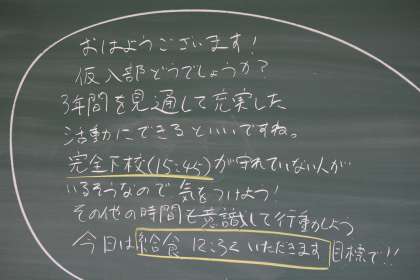 おはようございます！
仮入部どうでしょうか？
3年間を見通して充実した
活動にできるといいですね。
完全下校(15:45)が守れていない人が
いるそうなので気をつけよう！
その他の時間を意識して行動しよう
今日は給食 12:36 いただきます 目標で!!